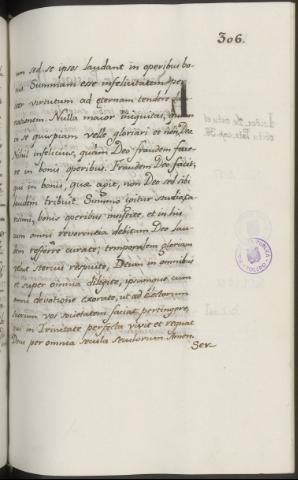 306.
um sed se ipsos laudant in operibus bo
nis. Summam esse infelicitatem per
ter virtutum ad eternam tendere d
nationem. Nulla maior iniquitas, quam
a se quempiam velle gloriari et non Deo
Nihil infelicius, quam Deo fraudem face
re in bonis operibus. Fraudem Deo facit,
qui in bonis, quæ agit, non Deo sed sibi
laudem tribuit. Summo igitur studio,
simi, bonis operibus insistite, et in his
cum omni reverentia debitam Deo lau
dem referre curate; temporalem gloriam
velut stercus respuite, Deum in omnibus
et super omnia diligite, ipsumque cum
omni devotione exorate, ut ad Sanctorum
suorum vos societatem faciat pertingere,
qui in Trinitate perfecta vivit et regnat
Deus per omnia secula seculorum Amen.
Ser